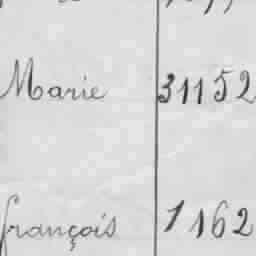 Marie 31152
françois 1162